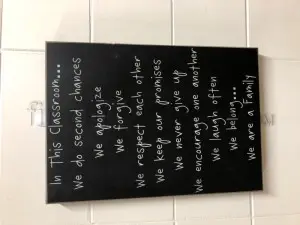 In This Classroom...
We do second chances
We apologize
We forgive
We respect each other
We keep our promises
We never give up
We encourage one another
We laugh often
We belong...
We are a Family